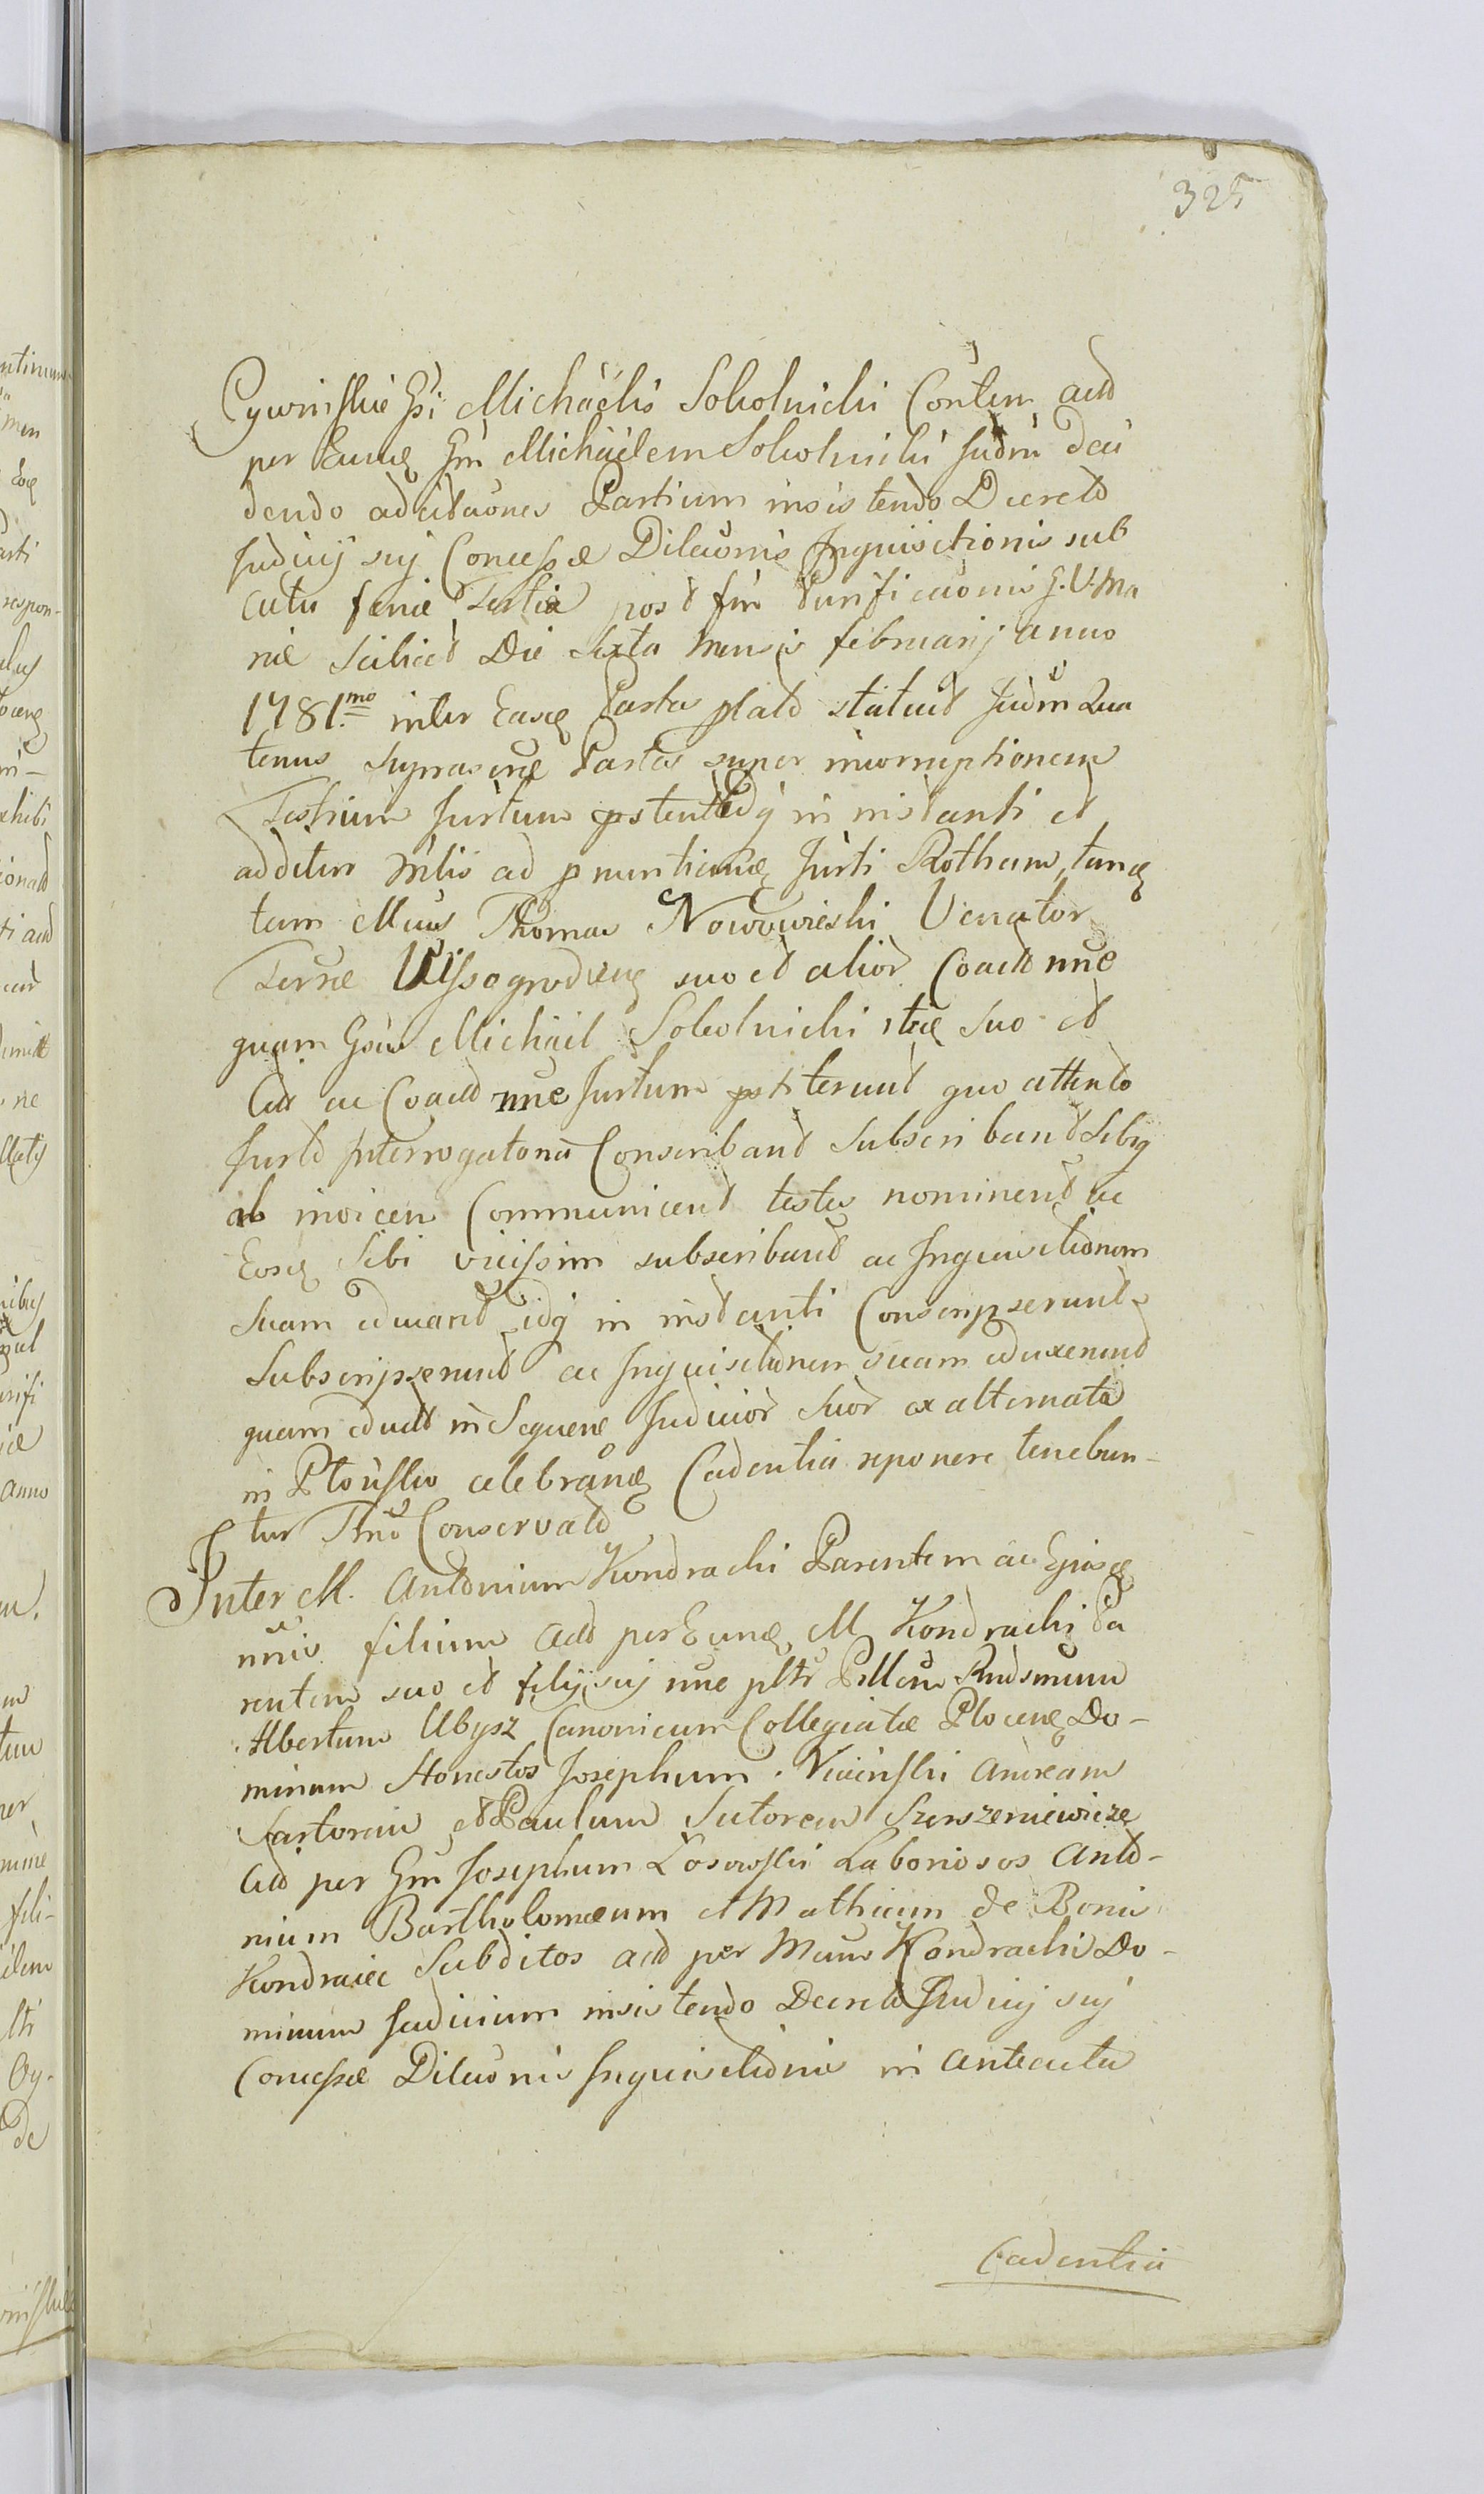 325
Cywinskie Gsi Michaëlis Sokolnicki Contem actt
per Eunde Gm Michäelem Sokolnicki Judm deci
dendo ad citaones Partium insistendo Decreto
Judicij sui Concessæ Dilaonis Inquisitionis sub
actu feriæ Tertiæ post fm Purificaonis G. V. Ma
riæ Scilicet Die Sexta Mensis februarij anno
1781.mo inter Easde Partes plato statuit Judm Qua
tenus Suprascrae Partes super incorruptionem
Testium Jurtum pstent Idq in instanti et
additur Mtlis ad pnuntiand Jurti Rotham, tum
tam Mcus Thomas Nowowieski Venator
Terræ Wissogroden suo et alior Coactt nne
quam Gsus Michäel Sokolnicki itde Suo et
Cit ac Coactt nne Jurtum pstiterunt quo attento
Jurto Interrogatoria Conscribant Subscribant Sibiq
ab invicem Communicent testes nominent ac
Eosde Sibi vicissim subscribant ac Inquisitionem
Suam educant idq in instanti Conscripserunt
Subscripserunt ac Inquisitionem suam eduxerunt
quam eductt in Sequen Judicior Suor ex alternata
in Płońsko celebrand Cadentia reponere tenebun-
tur Thno Conservato
Inter M. Antonium Kondracki Parentem ac Ejusde
nnis filium actt per Eunde M Kondracki Pa
rentem suo et filij sui nne pltr Pllem Rndsmum
Albertum Ubysz Canonicum Collegiatæ Plocen Do-
minum Honestos Josephum Andream
Sartorem et Paulum Sutorem Szerszeniewicze
Citt per Gm Josephum Łosowski Laboriosos Anto-
nium Bartholomæum et Mathæum de Bonis
Kondraiec Subditos actt per Mcum Kondracki Do-
minum Judicium insistendo Decreto Judicij sui
Concessæ Dilaonis Inquisitionis in antecuta
Cadentia